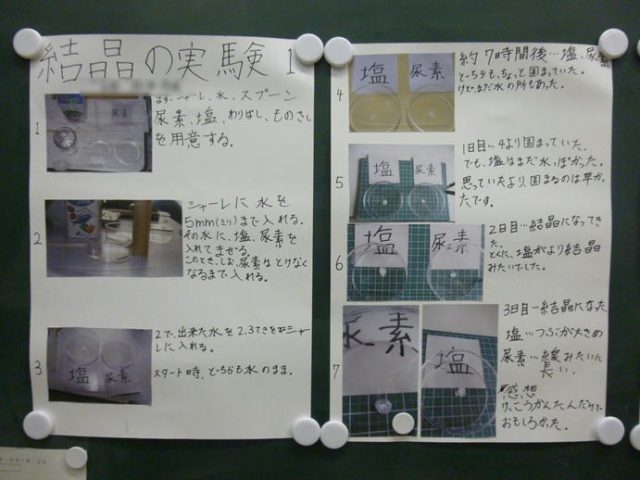 結晶の実験 1
1
まず、シャーレ、水、スプーン
尿素、塩、わりばし、ものさし
を用意する。
尿素
2
シャーレに水を
5mm(ミリ)まで入れる。
その水に、塩、尿素を
入れてまぜる。
このとき、しお、尿素はとけなく
なるまで入れる。
3
2で、出来た水を2.3てきをシャー
レに入れる。
スタート時、どちらも水のまま。
塩 尿素
4
約7時間後…塩、尿素
どちらも、ちょっと固まっていた。
けど、まだ水の所もあった。
塩 尿素
5
1日目…4より固まっていた。
でも、塩はまだ水っぽかった。
思っていたより、固まるのは早かっ
たです。
塩 尿素
6
2日目…結晶になってき
た。
とくに、塩がより結晶
みたいでした。
塩 尿素
7
3日目…結晶になった。
塩…つぶが大きめ
尿素…線みたいに
長い。
感想
けっこうかんたんだけど、
おもしろかった。
尿素
塩